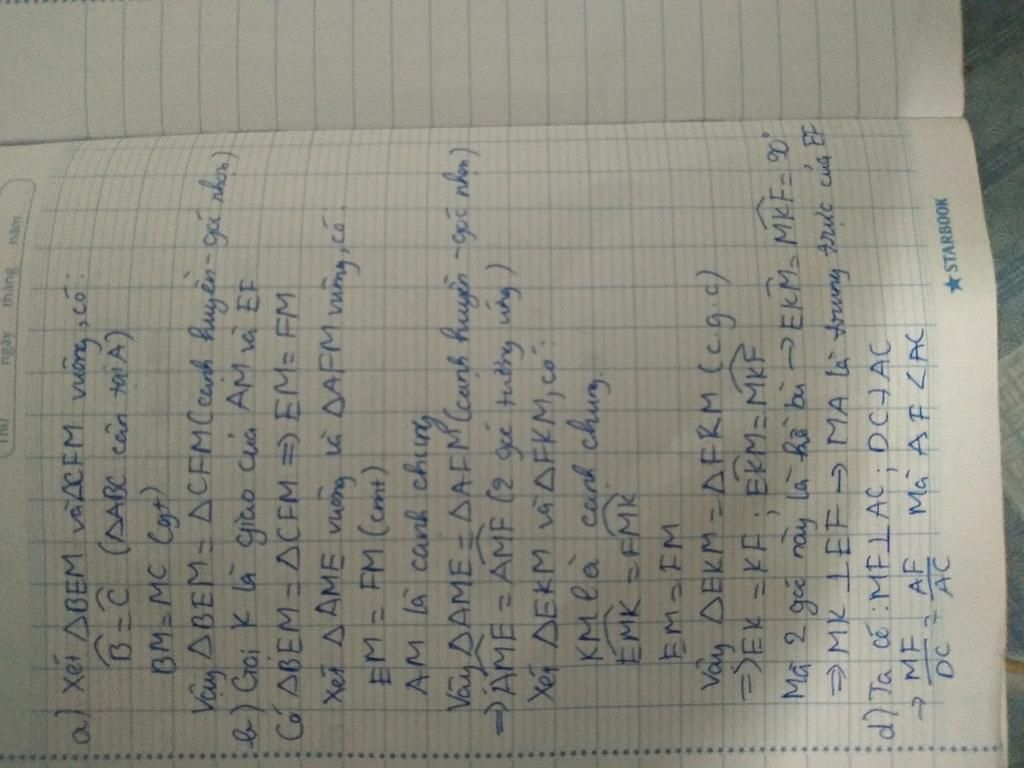 Thứ
ngày
tháng
năm
a) Xét ΔBEM và ΔCFM vuông, có:
B̂ = Ĉ (ΔABC cân tại A)
BM = MC (gt)
Vậy ΔBEM = ΔCFM (cạnh huyền - góc nhọn)
b) Gọi K là giao của AM và EF
Có ΔBEM = ΔCFM ⇒ EM = FM
Xét ΔAME vuông và ΔAFM vuông, có
EM = FM (cmt)
AM là cạnh chung
Vậy ΔAME = ΔAFM (cạnh huyền - góc nhọn)
⇒ \widehat{AME} = \widehat{AMF} (2 góc tương ứng)
Xét ΔEKM và ΔFKM, có:
KM là cạnh chung
\widehat{EMK} = \widehat{FMK}
EM = FM
Vậy ΔEKM = ΔFKM (c.g.c)
⇒ EK = KF; \widehat{EKM} = \widehat{MKF}
Mà 2 góc này là kề bù → \widehat{EKM} = \widehat{MKF} = 90°
⇒ MK ⊥ EF → MA là trung trực của EF
d) Ta có: MF ⊥ AC; DC ⊥ AC
→ MF/DC = AF/AC Mà AF < AC
★STARBOOK